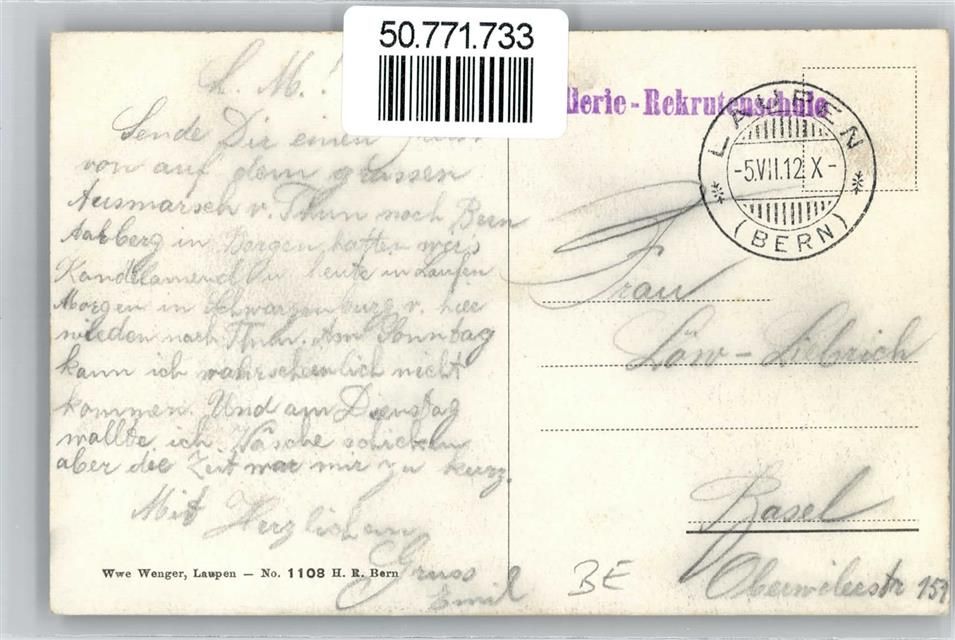 50.771.733
L. M.!
Sende Dir einen
von auf dem grossen
Ausmarsch v. Thun nach Bern
Aarberg in Bargen hatten wir
heute in Laufen
Morgen in Schwarzenburg v. hier
wieder nach Thun. Am Sonntag
kann ich wahrscheinlich nicht
kommen. Und am Dienstag
wollte ich Wäsche schicken
aber die Zeit war mir zu kurz.
Mit Herzlichem
Gruss
Emil
Wwe Wenger, Laupen – No. 1108 H. R. Bern
llerie-Rekrutenschule
LAUPEN
-5.VII.12.X-
(BERN)
Frau
Löw-Liebrich
Basel
Oberwilerstr 159
BE